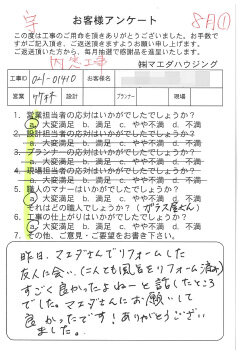 お客様アンケート
8月①
この度は工事のご用命を頂きありがとうございました。お手数で
すがご記入頂き、ご返送頂きますようお願い申し上げます。
ご返送いただいた方から、毎月抽選で感謝品を進呈いたします。
内窓工事
㈱マエダハウジング
工事ID
021-01410
お客様名
営業
設計
プランナー
現場
1. 営業担当者の応対はいかがでしたでしょうか?
a. 大変満足 b. 満足 c. やや不満 d. 不満
2. 設計担当者の応対はいかがでしたでしょうか?
a. 大変満足 b. 満足 c. やや不満 d. 不満
3. プランナーの応対はいかがでしたでしょうか?
a. 大変満足 b. 満足 c. やや不満 d. 不満
4. 現場担当者の応対はいかがでしたでしょうか?
a. 大変満足 b. 満足 c. やや不満 d. 不満
5. 職人のマナーはいかがでしたでしょうか?
a. 大変満足 b. 満足 c. やや不満 d. 不満
それはどの職人でしょうか?(ガラス屋さん)
6. 工事の仕上がりはいかがでしたでしょうか?
a. 大変満足 b. 満足 c. やや不満 d. 不満
その他、ご意見・ご要望をお書き下さい。
昨日、マエダさんでリフォームした
友人に会い、(二人とも風呂をリフォーム済み)
すごく良かったよねーと話したところ
でした。マエダさんにお願いして
良かったです!ありがとうござい
ました。